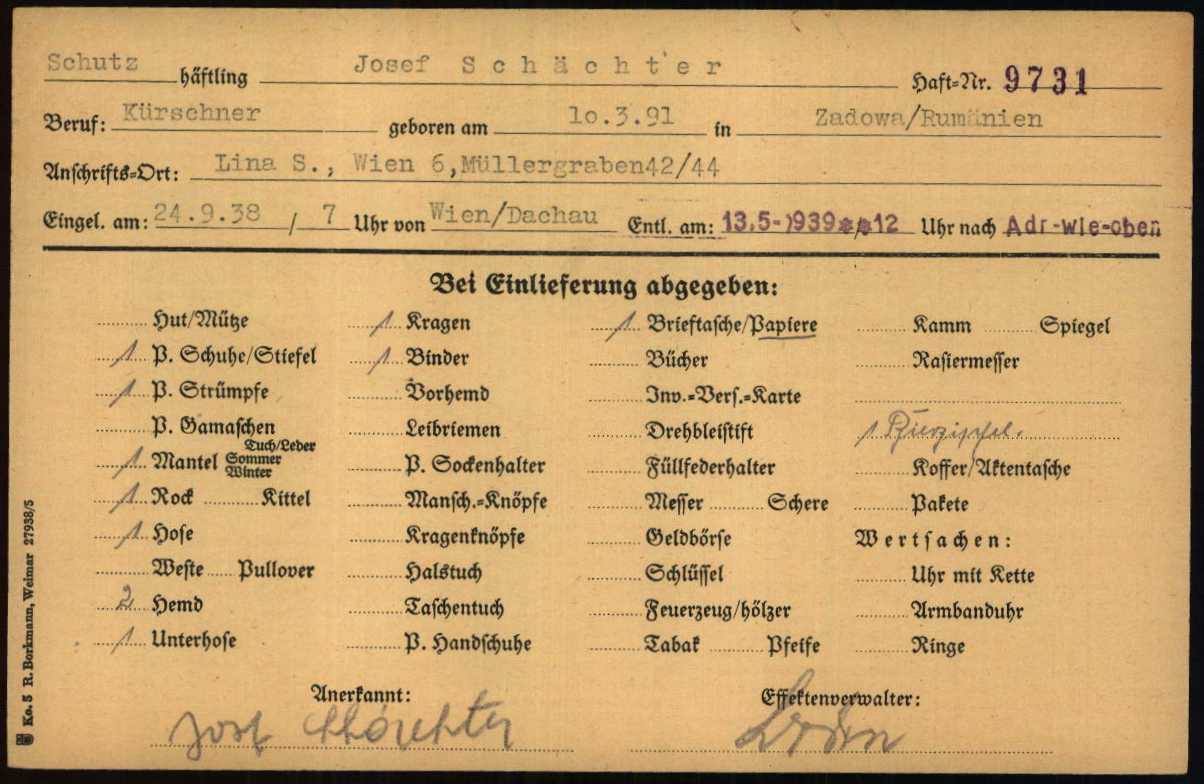 Schutz häftling Josef Schächter Haft-Nr. 9731
Beruf: Kürschner geboren am 10.3.91 in Zadowa/Rumänien
Anschrifts-Ort: Lina S., Wien 6,Müllergraben42/44
Eingel. am: 24.9.38 / 7 Uhr von Wien/Dachau Entl. am: 13.5-1939**12 Uhr nach Adr-wie-oben
Bei Einlieferung abgegeben:
Hut/Mütze 1 Kragen 1 Brieftasche/Papiere Kamm Spiegel
1 P. Schuhe/Stiefel 1 Binder Bücher Rasiermesser
1 P. Strümpfe Vorhemd Inv.-Vers.-Karte
P. Gamaschen Leibriemen Drehbleistift 1
1 Mantel Tuch/Leder Sommer Winter P. Sockenhalter Füllfederhalter Koffer/Aktentasche
1 Rock Kittel Mansch.-Knöpfe Messer Schere Pakete
1 Hose Kragenknöpfe Geldbörse Wertsachen:
Weste Pullover Halstuch Schlüssel Uhr mit Kette
2 Hemd Taschentuch Feuerzeug/hölzer Armbanduhr
1 Unterhose P. Handschuhe Tabak Pfeife Ringe
Anerkannt: Effektenverwalter:
Josef Schächter
Ko. 5 R. Borkmann, Weimar 27938/5